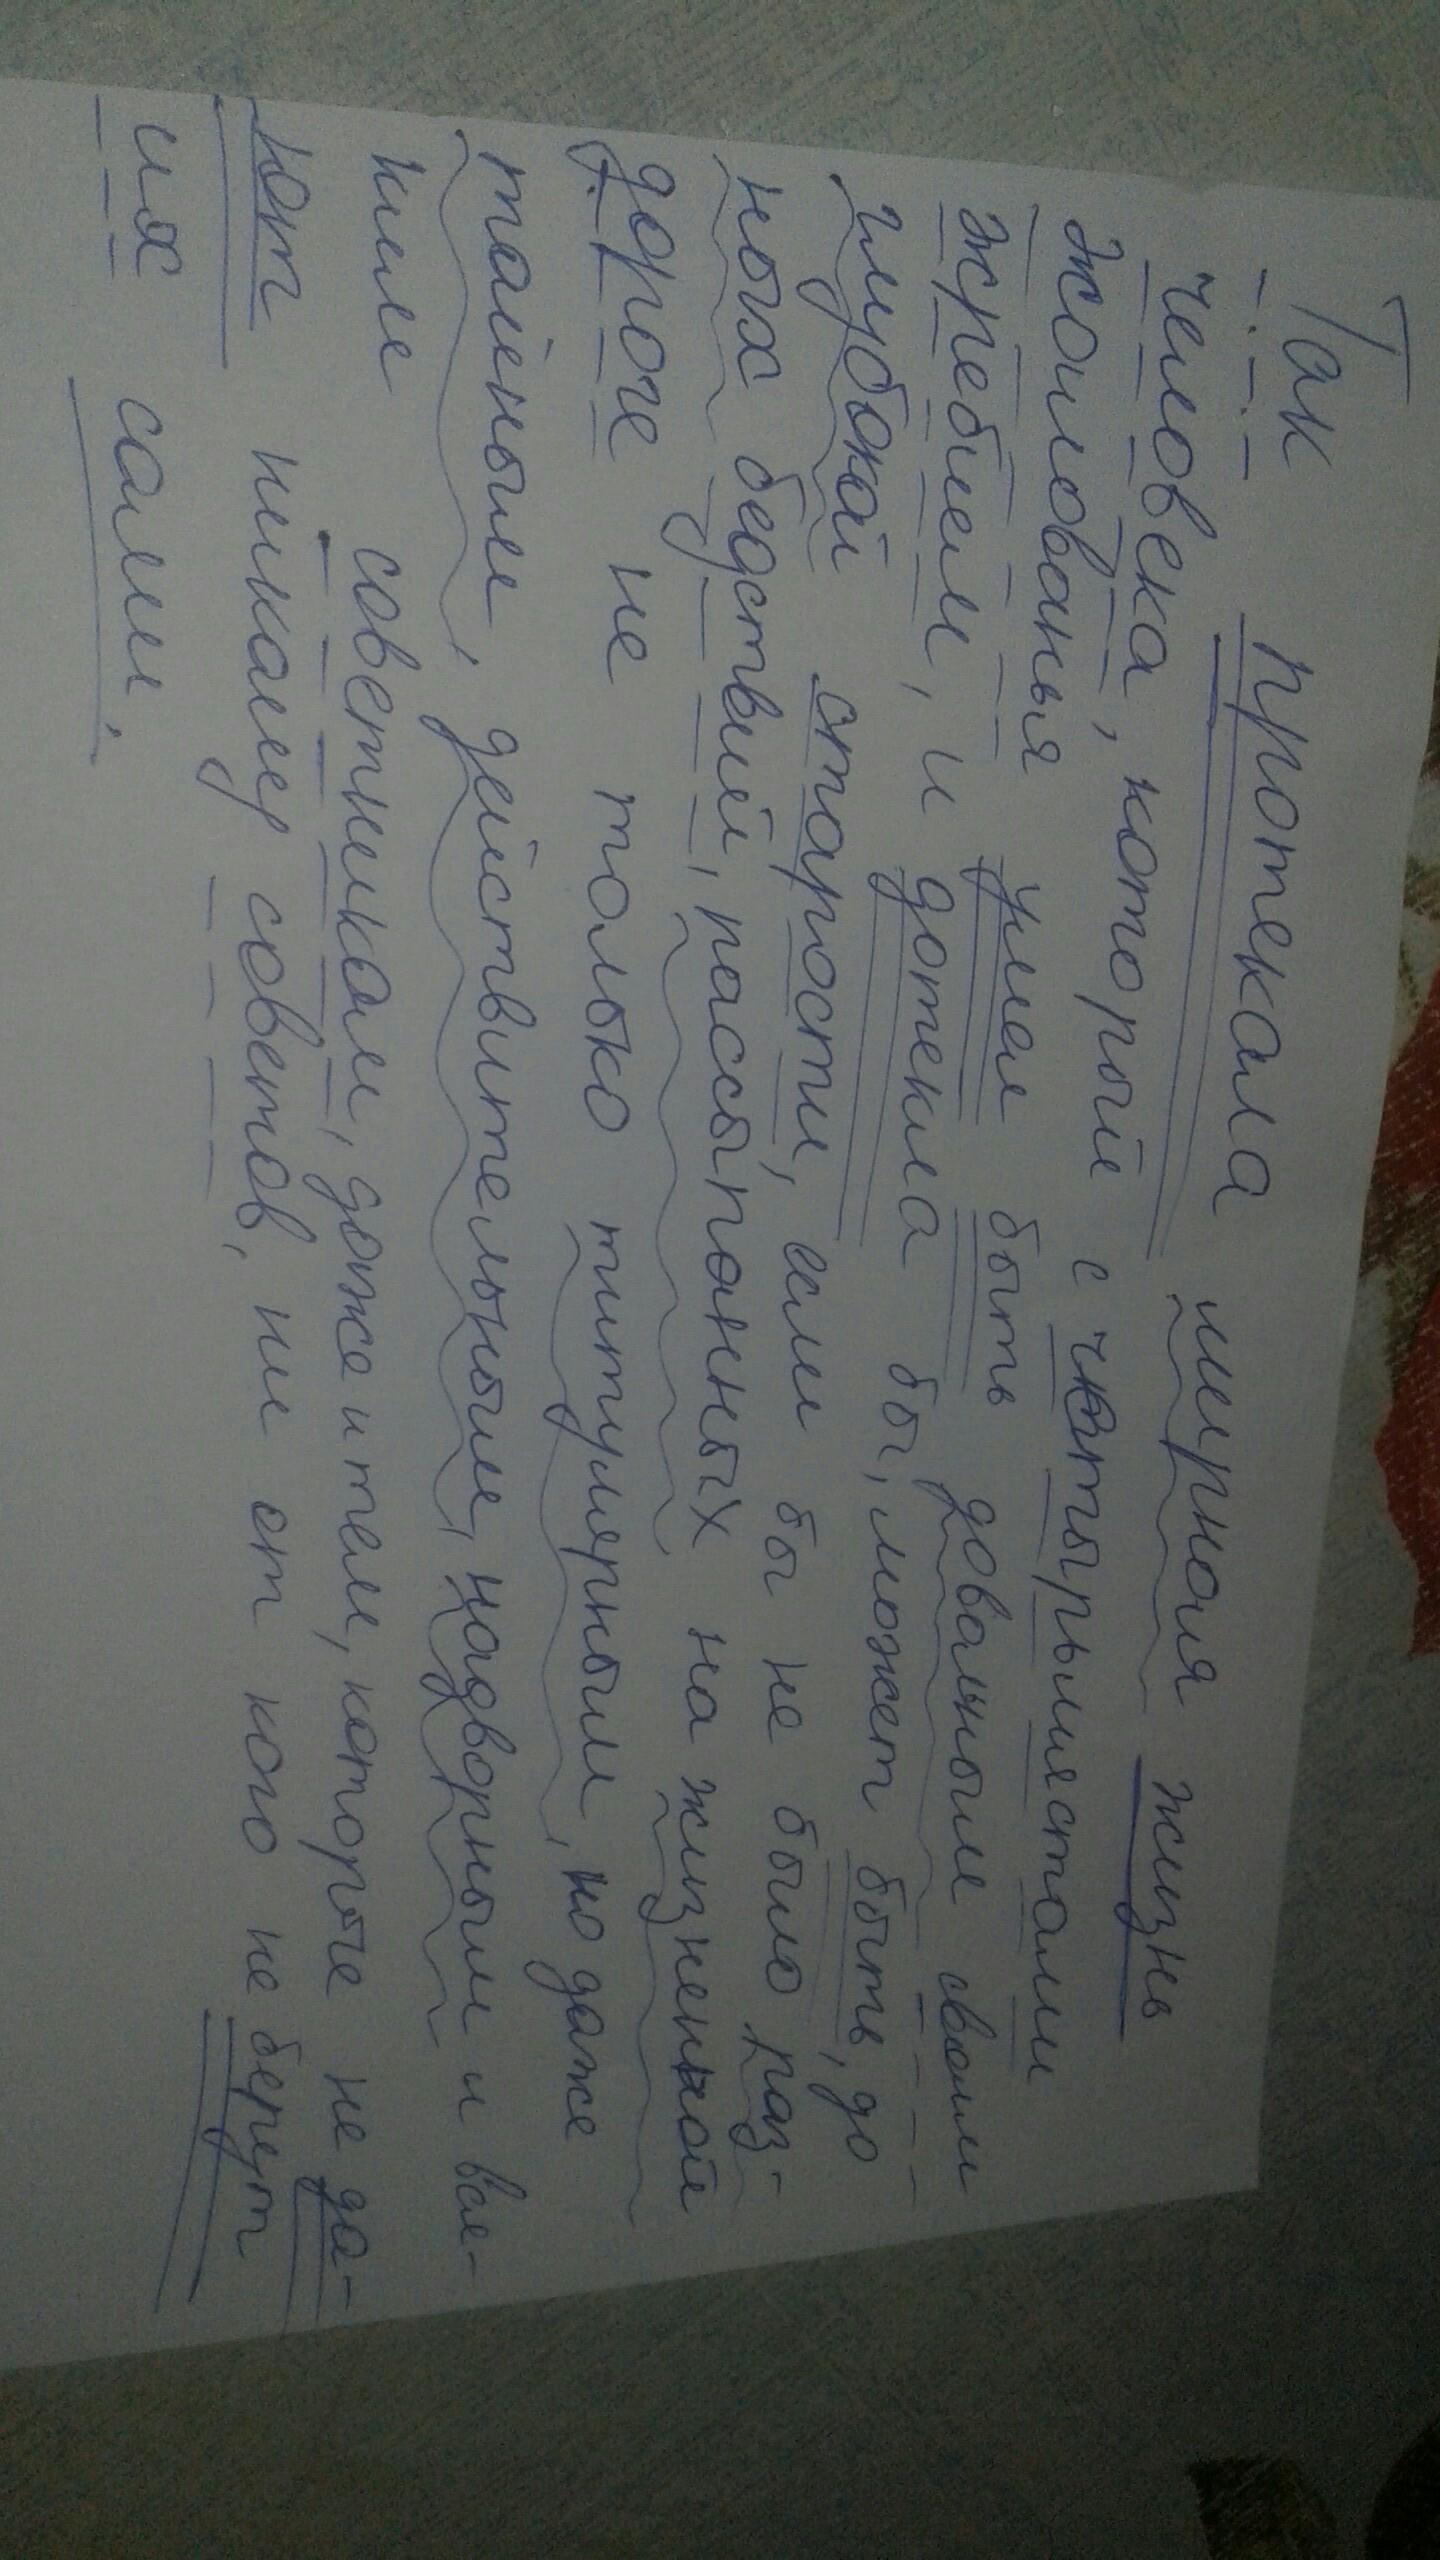 Так протекала мирная жизнь
человека, который с четырьмястами
жалованья умел быть довольным своим
жребием, и дотекла бы, может быть, до
глубокой старости, если бы не было раз-
ных бедствий, рассыпанных на жизненной
дороге не только титулярным, но даже
тайным, действительным, надворным и вся-
ким советникам, даже и тем, которые не да-
ют никому советов, ни от кого не берут
их сами.